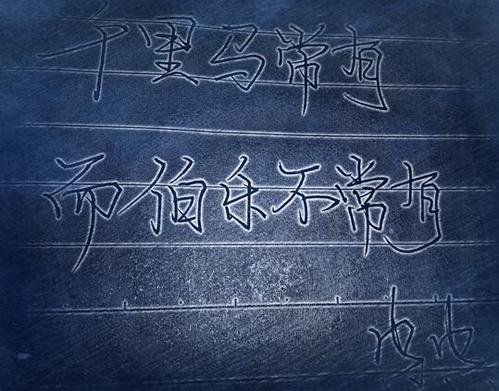 千里马常有
而伯乐不常有